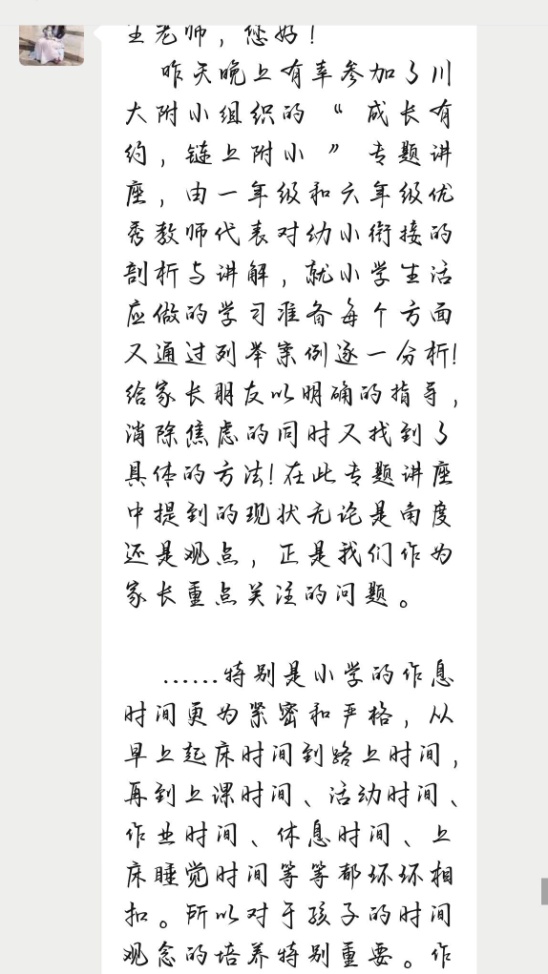 老师，您好！
昨天晚上有幸参加了川
大附小组织的“成长有
约，链上附小”专题讲
座，由一年级和六年级优
秀教师代表对幼小衔接的
剖析与讲解，就小学生活
应做的学习准备每个方面
又通过列举案例逐一分析！
给家长朋友以明确的指导，
消除焦虑的同时又找到了
具体的方法！在此专题讲座
中提到的现状无论是角度
还是观点，正是我们作为
家长重点关注的问题。
……特别是小学的作息
时间更为紧密和严格，从
早上起床时间到路上时间，
再到上课时间、活动时间、
作业时间、休息时间、上
床睡觉时间等等都环环相
扣。所以对于孩子的时间
观念的培养特别重要。作